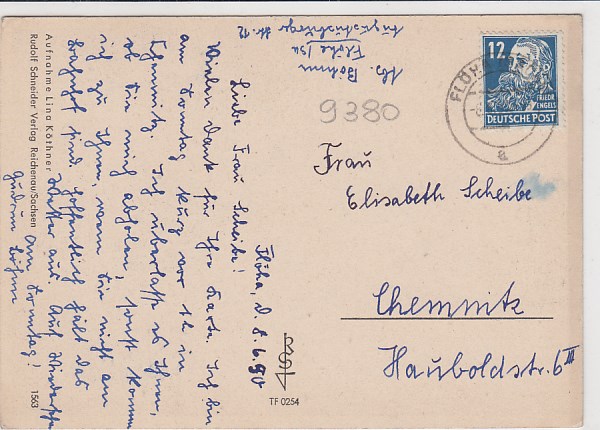 Abs. Böhme
Flöha/Sa
Augustusburger Str. 72
9380
12
FRIEDR
ENGELS
DEUTSCHE POST
FLÖHA
a
Frau
Elisabeth Scheibe
Chemnitz
Hauboldstr. 6 III
Flöha, d. 8.6.50
Liebe Frau Scheibe!
Vielen Dank für Ihre Karte. Ich bin
am Sonntag kurz vor 1/2 in
Chemnitz. Ich überlasse es Ihnen,
ob Sie mich abholen, sonst komme
ich zu Ihnen, wenn Sie nicht am
Bahnhof sind. Hoffentlich hält das
Wetter aus. Auf Wiedersehen
am Sonntag!
Gudrun Böhme
Aufnahme Lina Köthner
Rudolf Schneider Verlag Reichenau/Sachsen
1563
TF 0254